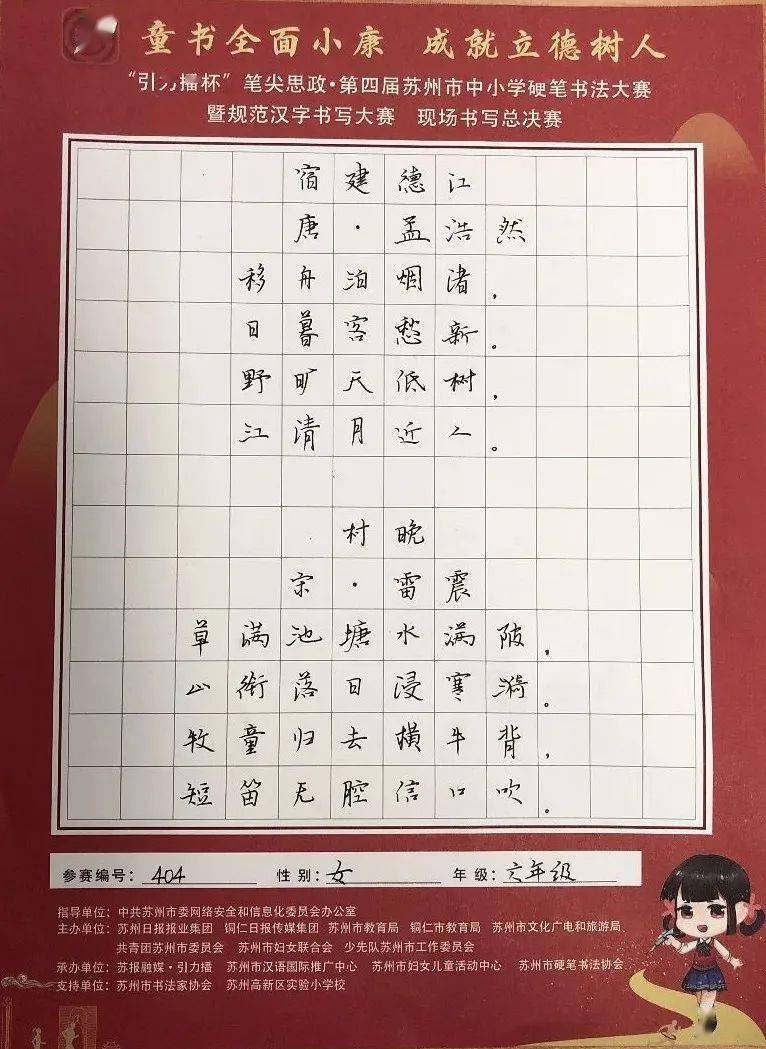 童书全面小康 成就立德树人
“引力播杯”笔尖思政·第四届苏州市中小学硬笔书法大赛
暨规范汉字书写大赛 现场书写总决赛
宿建德江
唐·孟浩然
移舟泊烟渚，
日暮客愁新。
野旷天低树，
江清月近人。
村晚
宋·雷震
草满池塘水满陂，
山衔落日浸寒漪。
牧童归去横牛背，
短笛无腔信口吹。
参赛编号：404 性别：女 年级：六年级
指导单位：中共苏州市委网络安全和信息化委员会办公室
主办单位：苏州日报报业集团 铜仁日报传媒集团 苏州市教育局 铜仁市教育局 苏州市文化广电和旅游局、
共青团苏州市委员会 苏州市妇女联合会 少先队苏州市工作委员会
承办单位：苏报融媒·引力播 苏州市汉语国际推广中心 苏州市妇女儿童活动中心 苏州市硬笔书法协会
支持单位：苏州市书法家协会 苏州高新区实验小学校